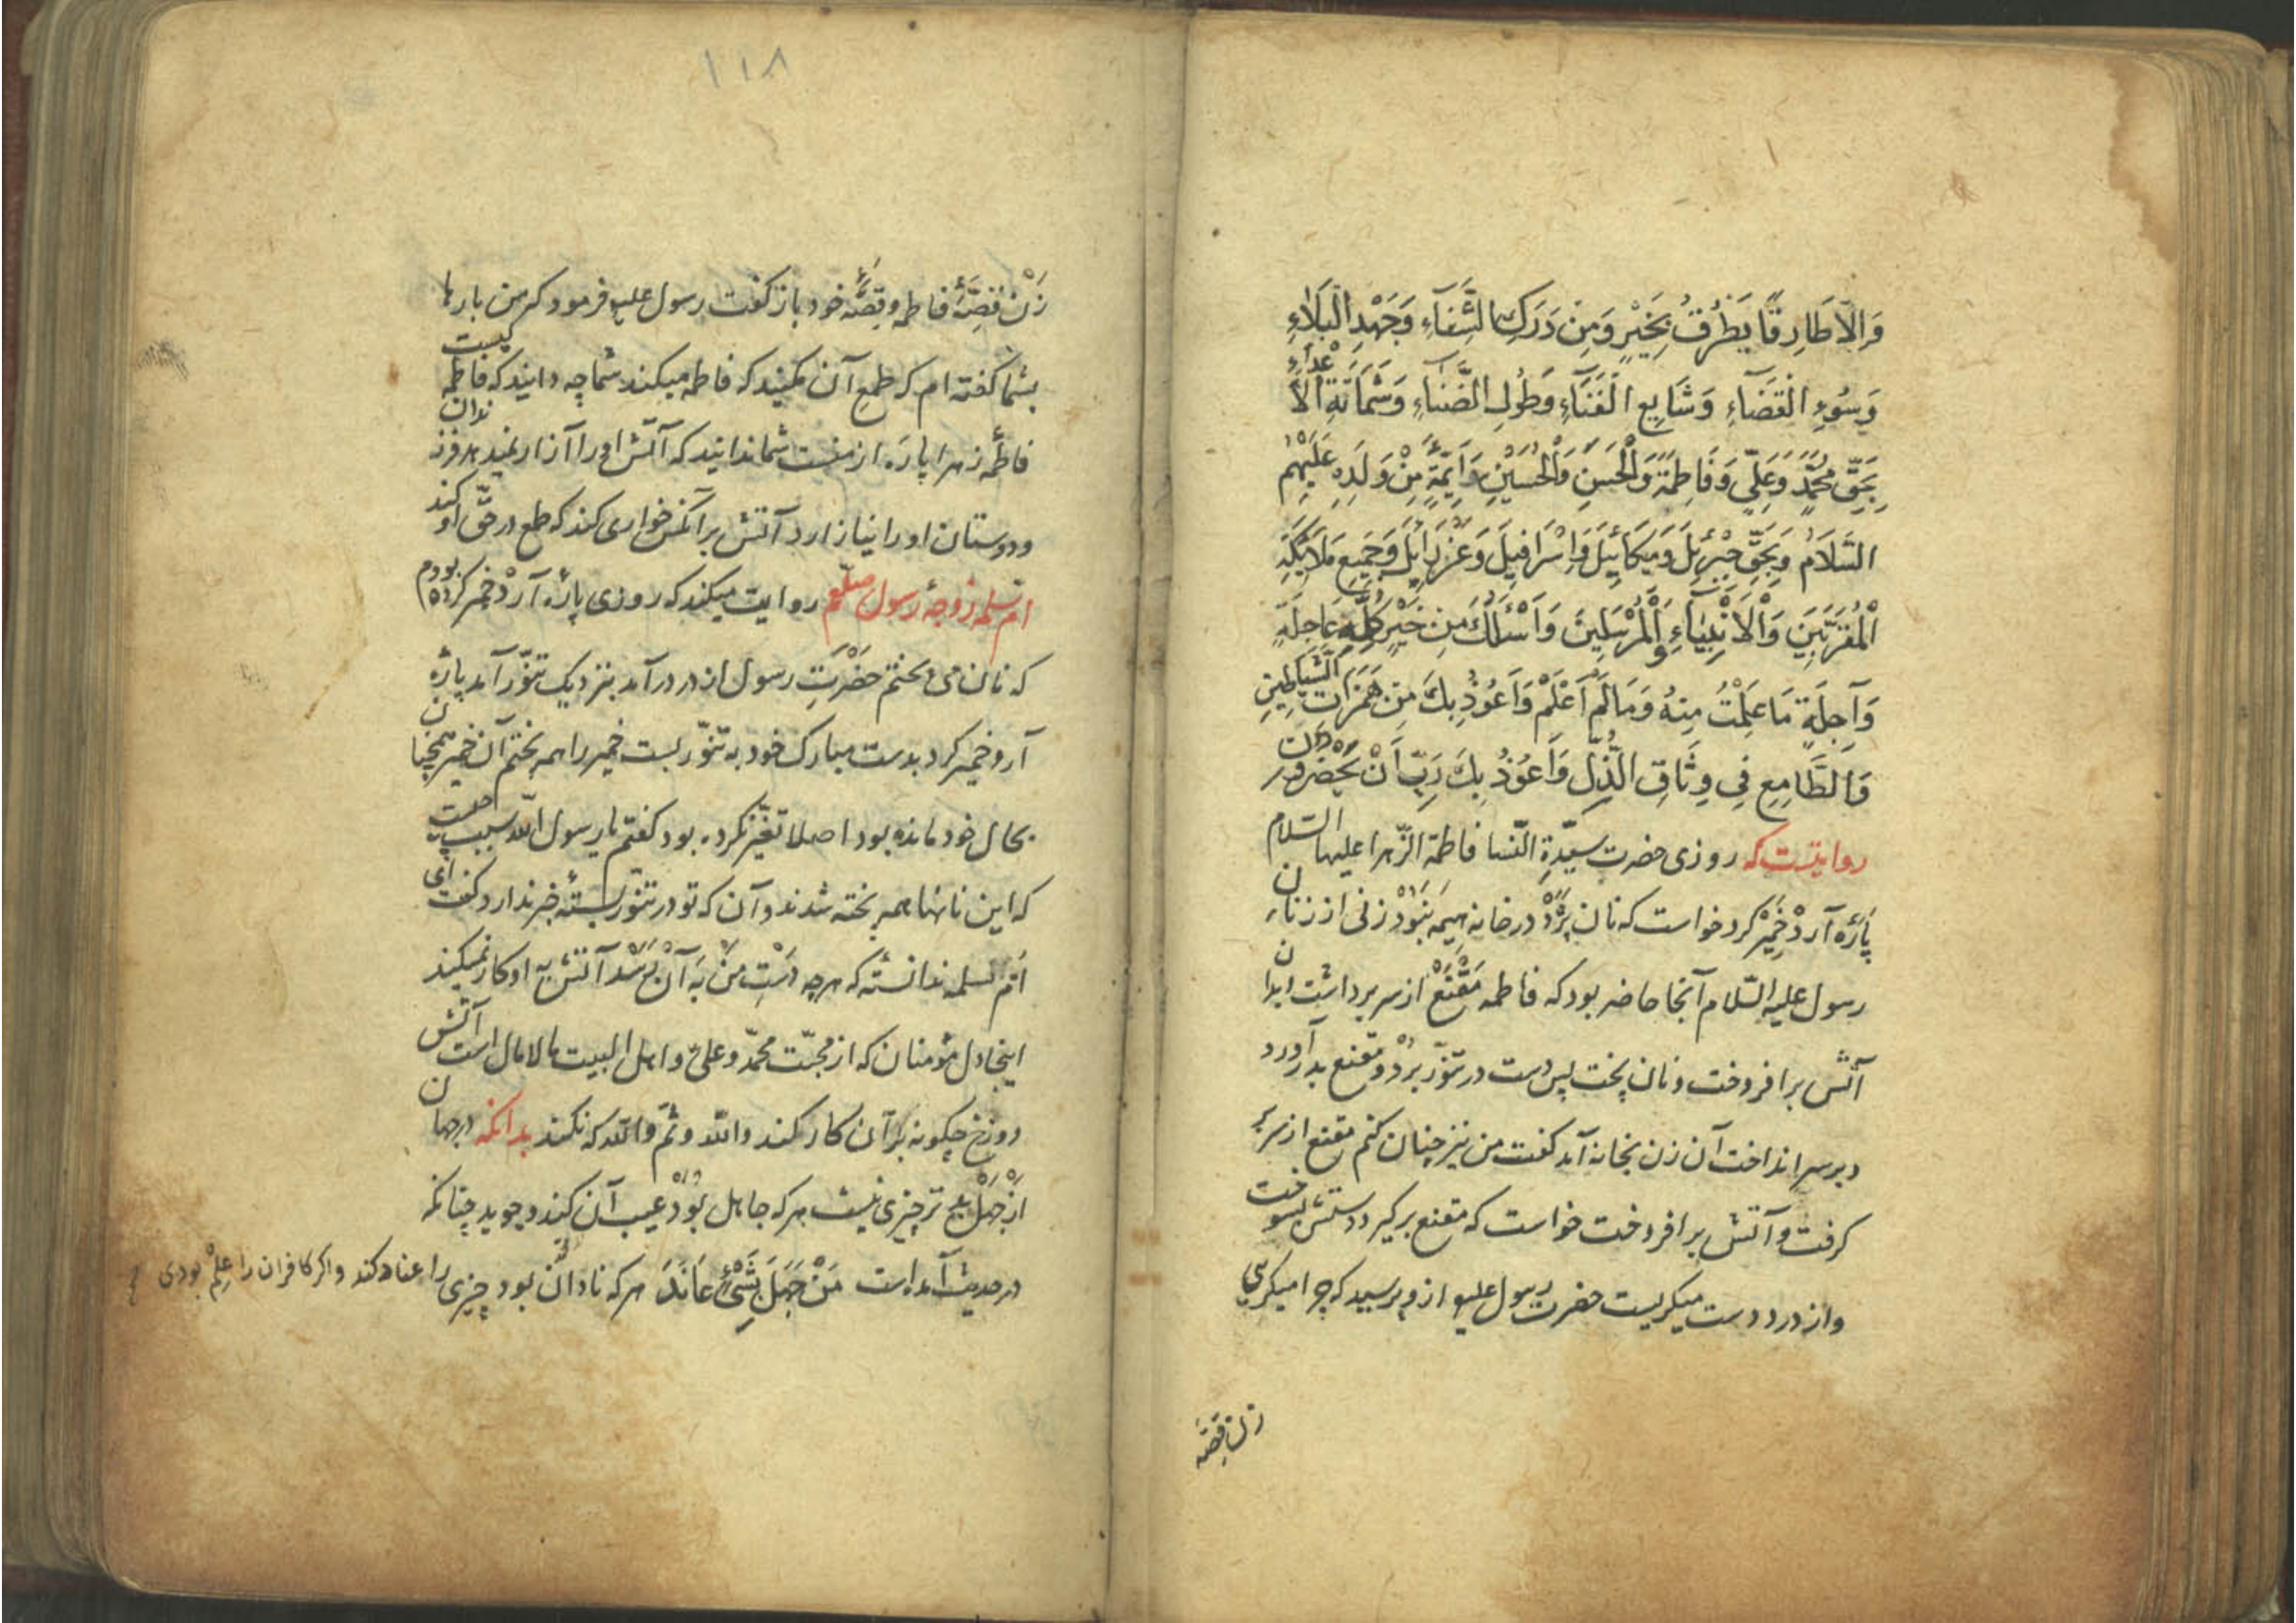 وَاِلاّ طَارِقًا يَطْرُقُ بِخَيْرٍ وَمِنْ دَرَكِ الشَّقَآءِ وَجَهْدِ الْبَلَاءِ
وَسُوءِ الْقَضَآءِ وَشَمَاتَةِ الْاَعْدَآءِ
بِحَقِّ مُحَمَّدٍ وَعَلِيٍّ وَفَاطِمَةَ وَالْحَسَنِ وَالْحُسَيْنِ وَاَئِمَّةٍ مِنْ وَلَدِهِ عَلَيْهِمُ
السَّلَامُ وَبِحَقِّ جِبْرَئِيلَ وَمِيكَائِيلَ وَاِسْرَافِيلَ وَعَزْرَائِيلَ وَجَمِيعِ مَلَائِكَةِ
الْمُقَرَّبِينَ وَالْاَنْبِيَآءِ وَالْمُرْسَلِينَ وَاَسْئَلُكَ مِنْ خَيْرٍ كُلِّهِ عَاجِلَةٍ
وَآجِلَةٍ مَا عَلِمْتُ مِنْهُ وَمَا لَمْ اَعْلَمْ وَاَعُوذُ بِكَ مِنْ هَمَزَاتِ الشَّيَاطِينِ
وَالطَّامِعِ فِي وِثَاقِ الذُّلِّ وَاَعُوذُ بِكَ رَبِّ اَنْ يَحْضُرُونِ
روایتست که روزی حضرت سیّدةِ النّسا فاطمة الزّهرا علیها السّلام
پاره آرد خمیر کرد خواست که نان پزد در خانه هیمه نبود زنی از زنان
رسول علیه السّلام آنجا حاضر بود که فاطمه مقنع از سر برداشت ابدان
آتش برافروخت و نان پخت پس دست در تنور برد و مقنع بدر آورد
و بر سر انداخت آن زن بخانه آمد کفت من نیز چنان کنم مقنع از سر
کرفت و آتش برافروخت خواست که مقنع برکیرد دستش بسوخت
و از درد دست میکریست حضرت رسول علیه از و پرسید که چرا میکریی
زن قصّه
۱۱۸
زن قصّهٔ فاطمه و قصّهٔ خود باز کفت رسول علیه فرمود که من بارها
بشما کفته ام که طمع آن مکنید که فاطمه میکند شما چه دانید که فاطمه کیست
فاطمه زهرا پاره از منست شما ندانید که آتش او را آزار نمید
و دوستان او را نیازارد آتش بر آنکس خواری کند که طمع در حقّ او کند
امّ سلمه زوجهٔ رسول صلعم روایت میکند که روزی پاره آرد خمیر کرده بودم
که نان می پختم حضرت رسول از در درآمد بنزدیک تنور آمد پاره
آرد خمیر کرد بدست مبارک خود به تنور بست خمیر را همه پختم آن خمیر همچنان
بحال خود مانده بود اصلا تغیّر نکرده بود کفتم یا رسول الله سبب چیست
که این نانها همه پخته شدند و آن که تو در تنور بستهٔ خبر ندارد کفت ای
امّ سلمه ندانستهٔ که هر چه دست من به آن رسد آتش به او کار نمیکند
اینجا دل مؤمنان که از محبّت محمّد و علی و اهل البیت مالامال است آتش
دوزخ چکونه بر آن کار کند والله و ثمّ والله که نکند بدانکه در جهان
از جهل بتر چیزی نیست هر که جاهل بود عیب آن کند و جوید چنانکه
در حدیث آمده است مَنْ جَهِلَ بِشَیْءٍ عَانَدَ هر که نادان بود چیزی را عناد کند و اکر کافران را علم بودی